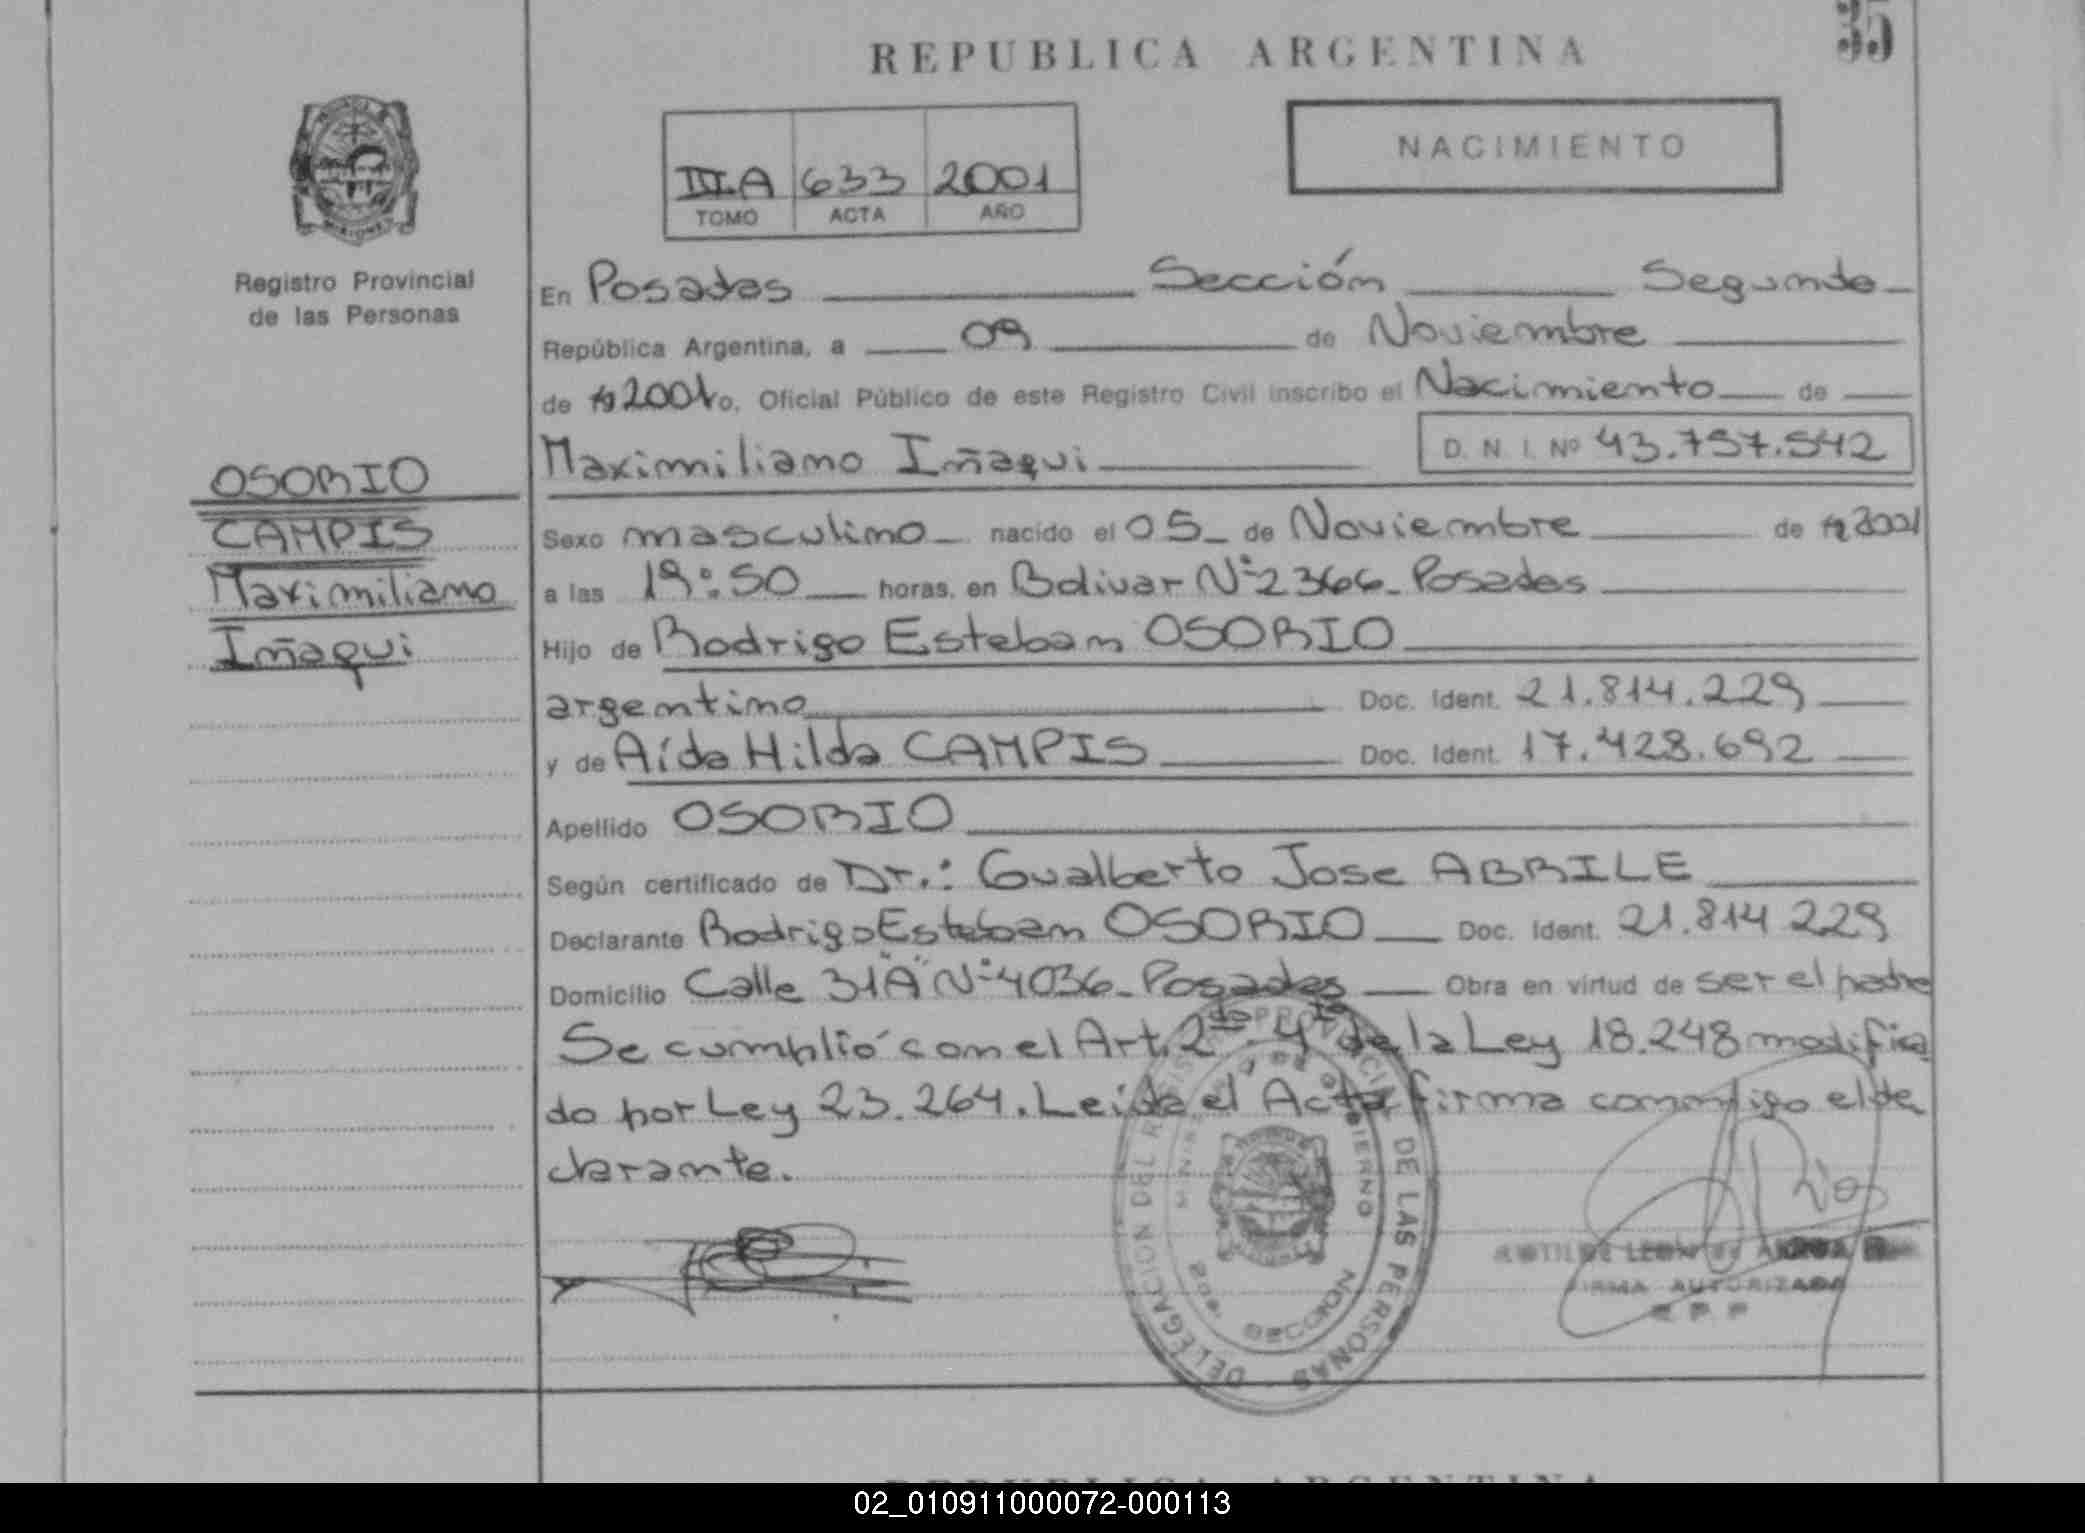 35
REPUBLICA ARGENTINA
NACIMIENTO
III A 633 2001
TOMO ACTA AÑO
Registro Provincial
de las Personas
En Posadas Sección Segunda
República Argentina, a 09 de Noviembre
de 19 2001 o, Oficial Público de este Registro Civil inscribo el Nacimiento de
Maximiliano Iñaqui D. N. I. Nº 43.757.542
OSORIO
CAMPIS
Maximiliano
Iñaqui
Sexo masculino nacido el 05 de Noviembre de 19 2001
a las 19:50 horas, en Bolivar Nº 2366 - Posadas
Hijo de Rodrigo Esteban OSORIO
argentino Doc. Ident. 21.814.229
y de Aída Hilda CAMPIS Doc. Ident. 17.428.692
Apellido OSORIO
Según certificado de Dr.: Gualberto Jose ABRILE
Declarante Rodrigo Esteban OSORIO Doc. Ident. 21.814 229
Domicilio Calle 31"A" Nº 4036 - Posadas Obra en virtud de ser el padre
Se cumplió con el Art. 2do - 4to de la Ley 18.248 modifica
do por Ley 23.264. Leida el Acta firma conmigo el de
clarante.
DELEGACION DEL REGISTRO PROVINCIAL DE LAS PERSONAS
MINISTERIO DE GOBIERNO
2da. SECCION
FIRMA AUTORIZADA
R P P
REPUBLICA ARGENTINA
02_010911000072-000113